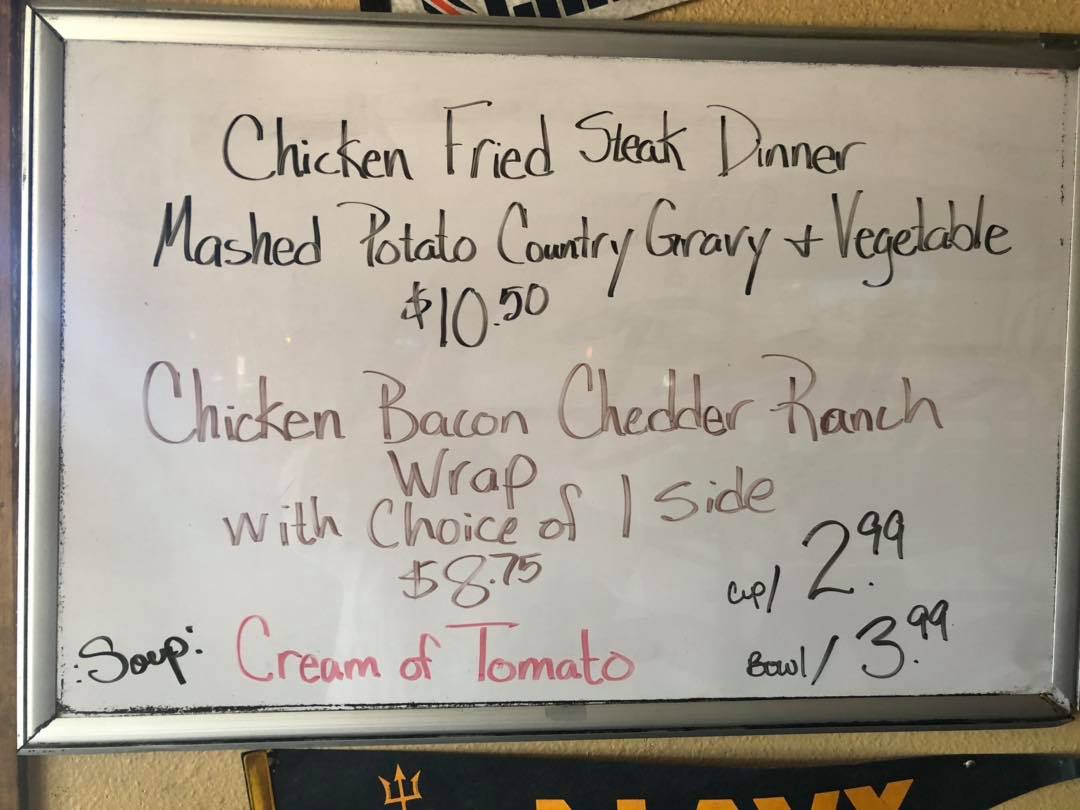 Chicken Fried Steak Dinner
Mashed Potato Country Gravy + Vegetable
$10.50
Chicken Bacon Chedder Ranch
Wrap
with Choice of 1 Side
$8.75
cup/ 2.99
Soup: Cream of Tomato
Bowl/ 3.99
NAVY